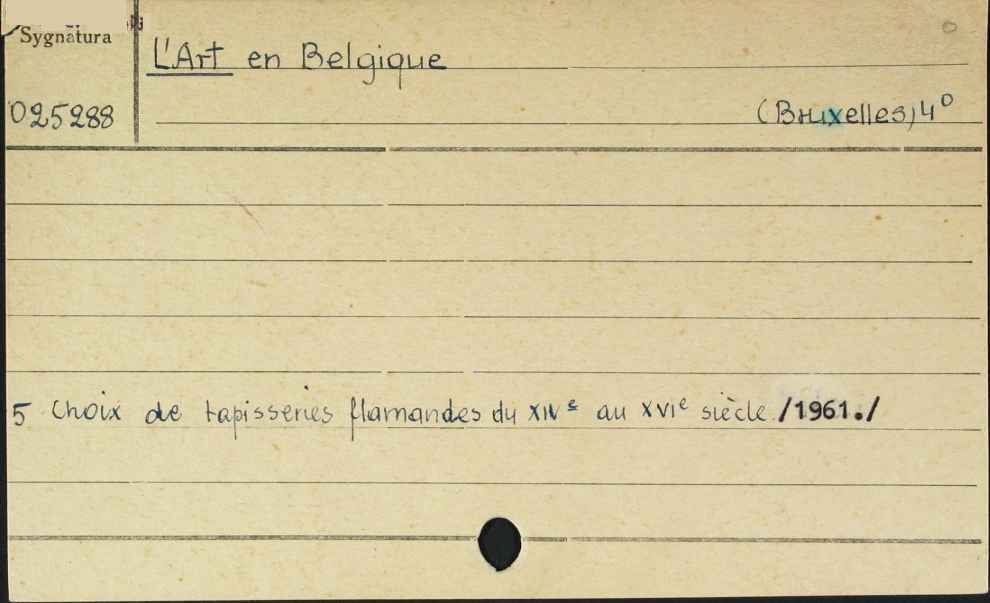 Sygnatura
L'Art en Belgique
025288
(Bruxelles) 4º
5 Choix de tapisseries flamandes du XIVe au XVIe siècle /1961./